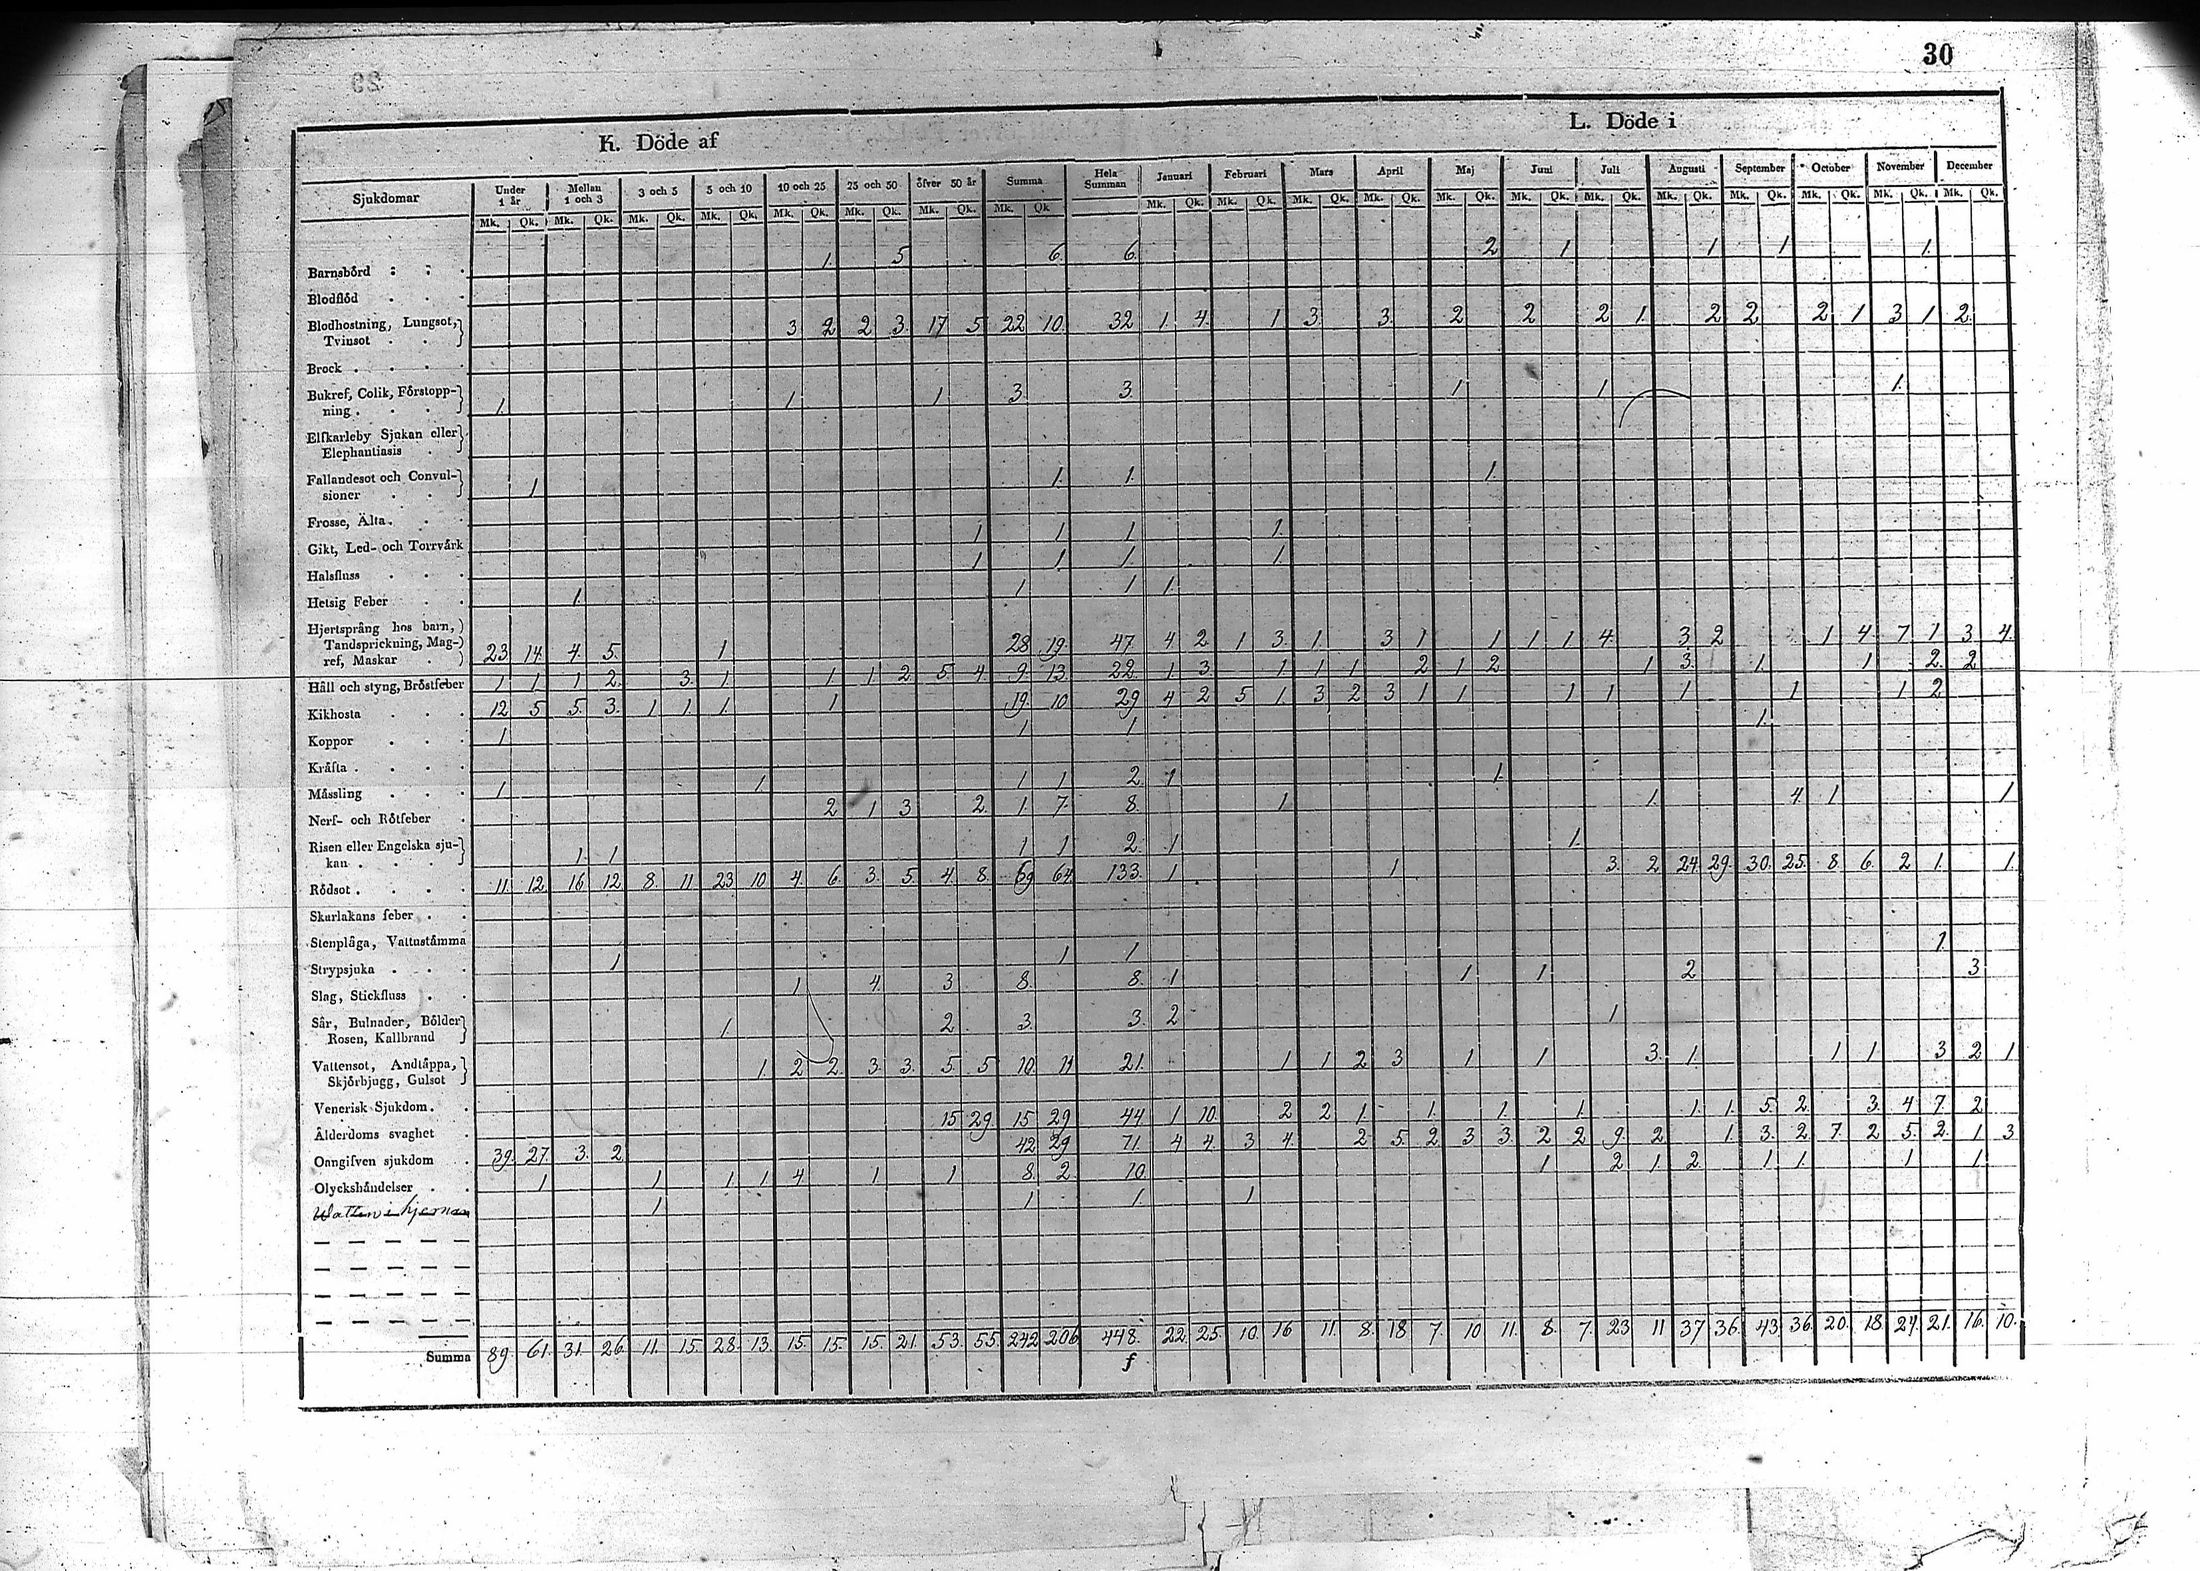 30
K. Döde af L. Döde i
Sjukdomar Under 1 år Mellan 1 och 3 3 och 5 5 och 10 10 och 25 25 och 50 öfver 50 år Summa Hela Summan Januari Februari Mars April Maj Juni Juli Augusti September October November December
Mk. Qk. Mk. Qk. Mk. Qk. Mk. Qk. Mk. Qk. Mk. Qk. Mk. Qk. Mk. Qk Mk. Qk. Mk. Qk. Mk. Qk. Mk. Qk. Mk. Qk. Mk. Qk. Mk. Qk. Mk. Qk. Mk. Qk. Mk. Qk. Mk. Qk. Mk. Qk.
Barnsbörd 1. 5 6. 6. 2 1. 1. 1 1.
Blodflöd
Blodhostning, Lungsot,
Tvinsot 3 2 2 3. 17 5 22 10. 32 1. 4. 1 3. 3. 2 2 2 1. 2 2 2 1 3 1 2.
Brock
Bukref, Colik, Förstopp-
ning 1. 1 1 3. 3. 1 1 1.
Elfkarleby Sjukan eller
Elephantiasis
Fallandesot och Convul-
sioner 1 1. 1. 1.
Frosse, Älta
Gikt, Led- och Torrvärk 1 1 1 1.
Halsfluss 1 1 1. 1.
Hetsig Feber 1. 1 1 1.
Hjertsprång hos barn,
Tandsprickning, Mag-
ref, Maskar 23 14 4. 5. 1 28 19. 47 4 2 1 3. 1. 3 1 1 1 1. 4. 3. 2 1 4. 7 1 3 4.
Håll och styng, Bröstfeber 1 1. 1 2. 3. 1 1 1 2 5 4. 9. 13. 22. 1 3. 1 1 1 2 1 2 1 3. 1. 1 2. 2.
Kikhosta 12 5 5. 3. 1 1. 1. 1 19. 10 29 4 2 5 1. 3 2 3 1 1 1 1 1 1 1 2
Koppor 1 1 1 1.
Kräfta
Mässling 1 1 1 1 2 1 1.
Nerf- och Rötfeber 2 1 3 2. 1. 7. 8. 1 1. 4. 1 1
Risen eller Engelska sju-
kan 1. 1 1 1 2. 1 1.
Rödsot 11. 12. 16 12 8. 11 23 10 4. 6. 3. 5. 4. 8. 69 64 133. 1 1 3. 2 24 29. 30. 25. 8. 6. 2 1. 1.
Skarlakans feber
Stenplåga, Vattustämma
Strypsjuka 1 1 1. 1.
Slag, Stickfluss 1 4. 3 8. 8. 1 1. 1 2 3
Sår, Bulnader, Bölder
Rosen, Kallbrand 1 2 3. 3. 2 1
Vattensot, Andtäppa,
Skjörbjugg, Gulsot 1 2 2. 3. 3. 5. 5 10. 11 21. 1 1 2 3 1 1 3. 1. 1 1 3 2 1
Venerisk Sjukdom
Ålderdoms svaghet 15 29. 15 29 44 1 10. 2 2 1. 1. 1. 1. 1. 1. 5. 2. 3. 4 7. 2
Onngifven sjukdom 39. 27. 3. 2 42 29 71. 4 4. 3 4. 2 5. 2 3 3. 2 2 9. 2 1. 3. 2. 7. 2 5. 2. 1 3
Olyckshändelser 1 1 1 1 4 1 1 8. 2 10. 1 2 1 2 1 1. 1 1
Watten i hjernan 1 1 1. 1
Summa 89. 61. 31. 26. 11. 15. 28. 13. 15. 15. 15. 21. 53. 55. 242 206 448. 22. 25. 10. 16 11. 8. 18 7. 10 11. 8. 7. 23 11 37 36. 43. 36. 20. 18 24. 21. 16. 10.